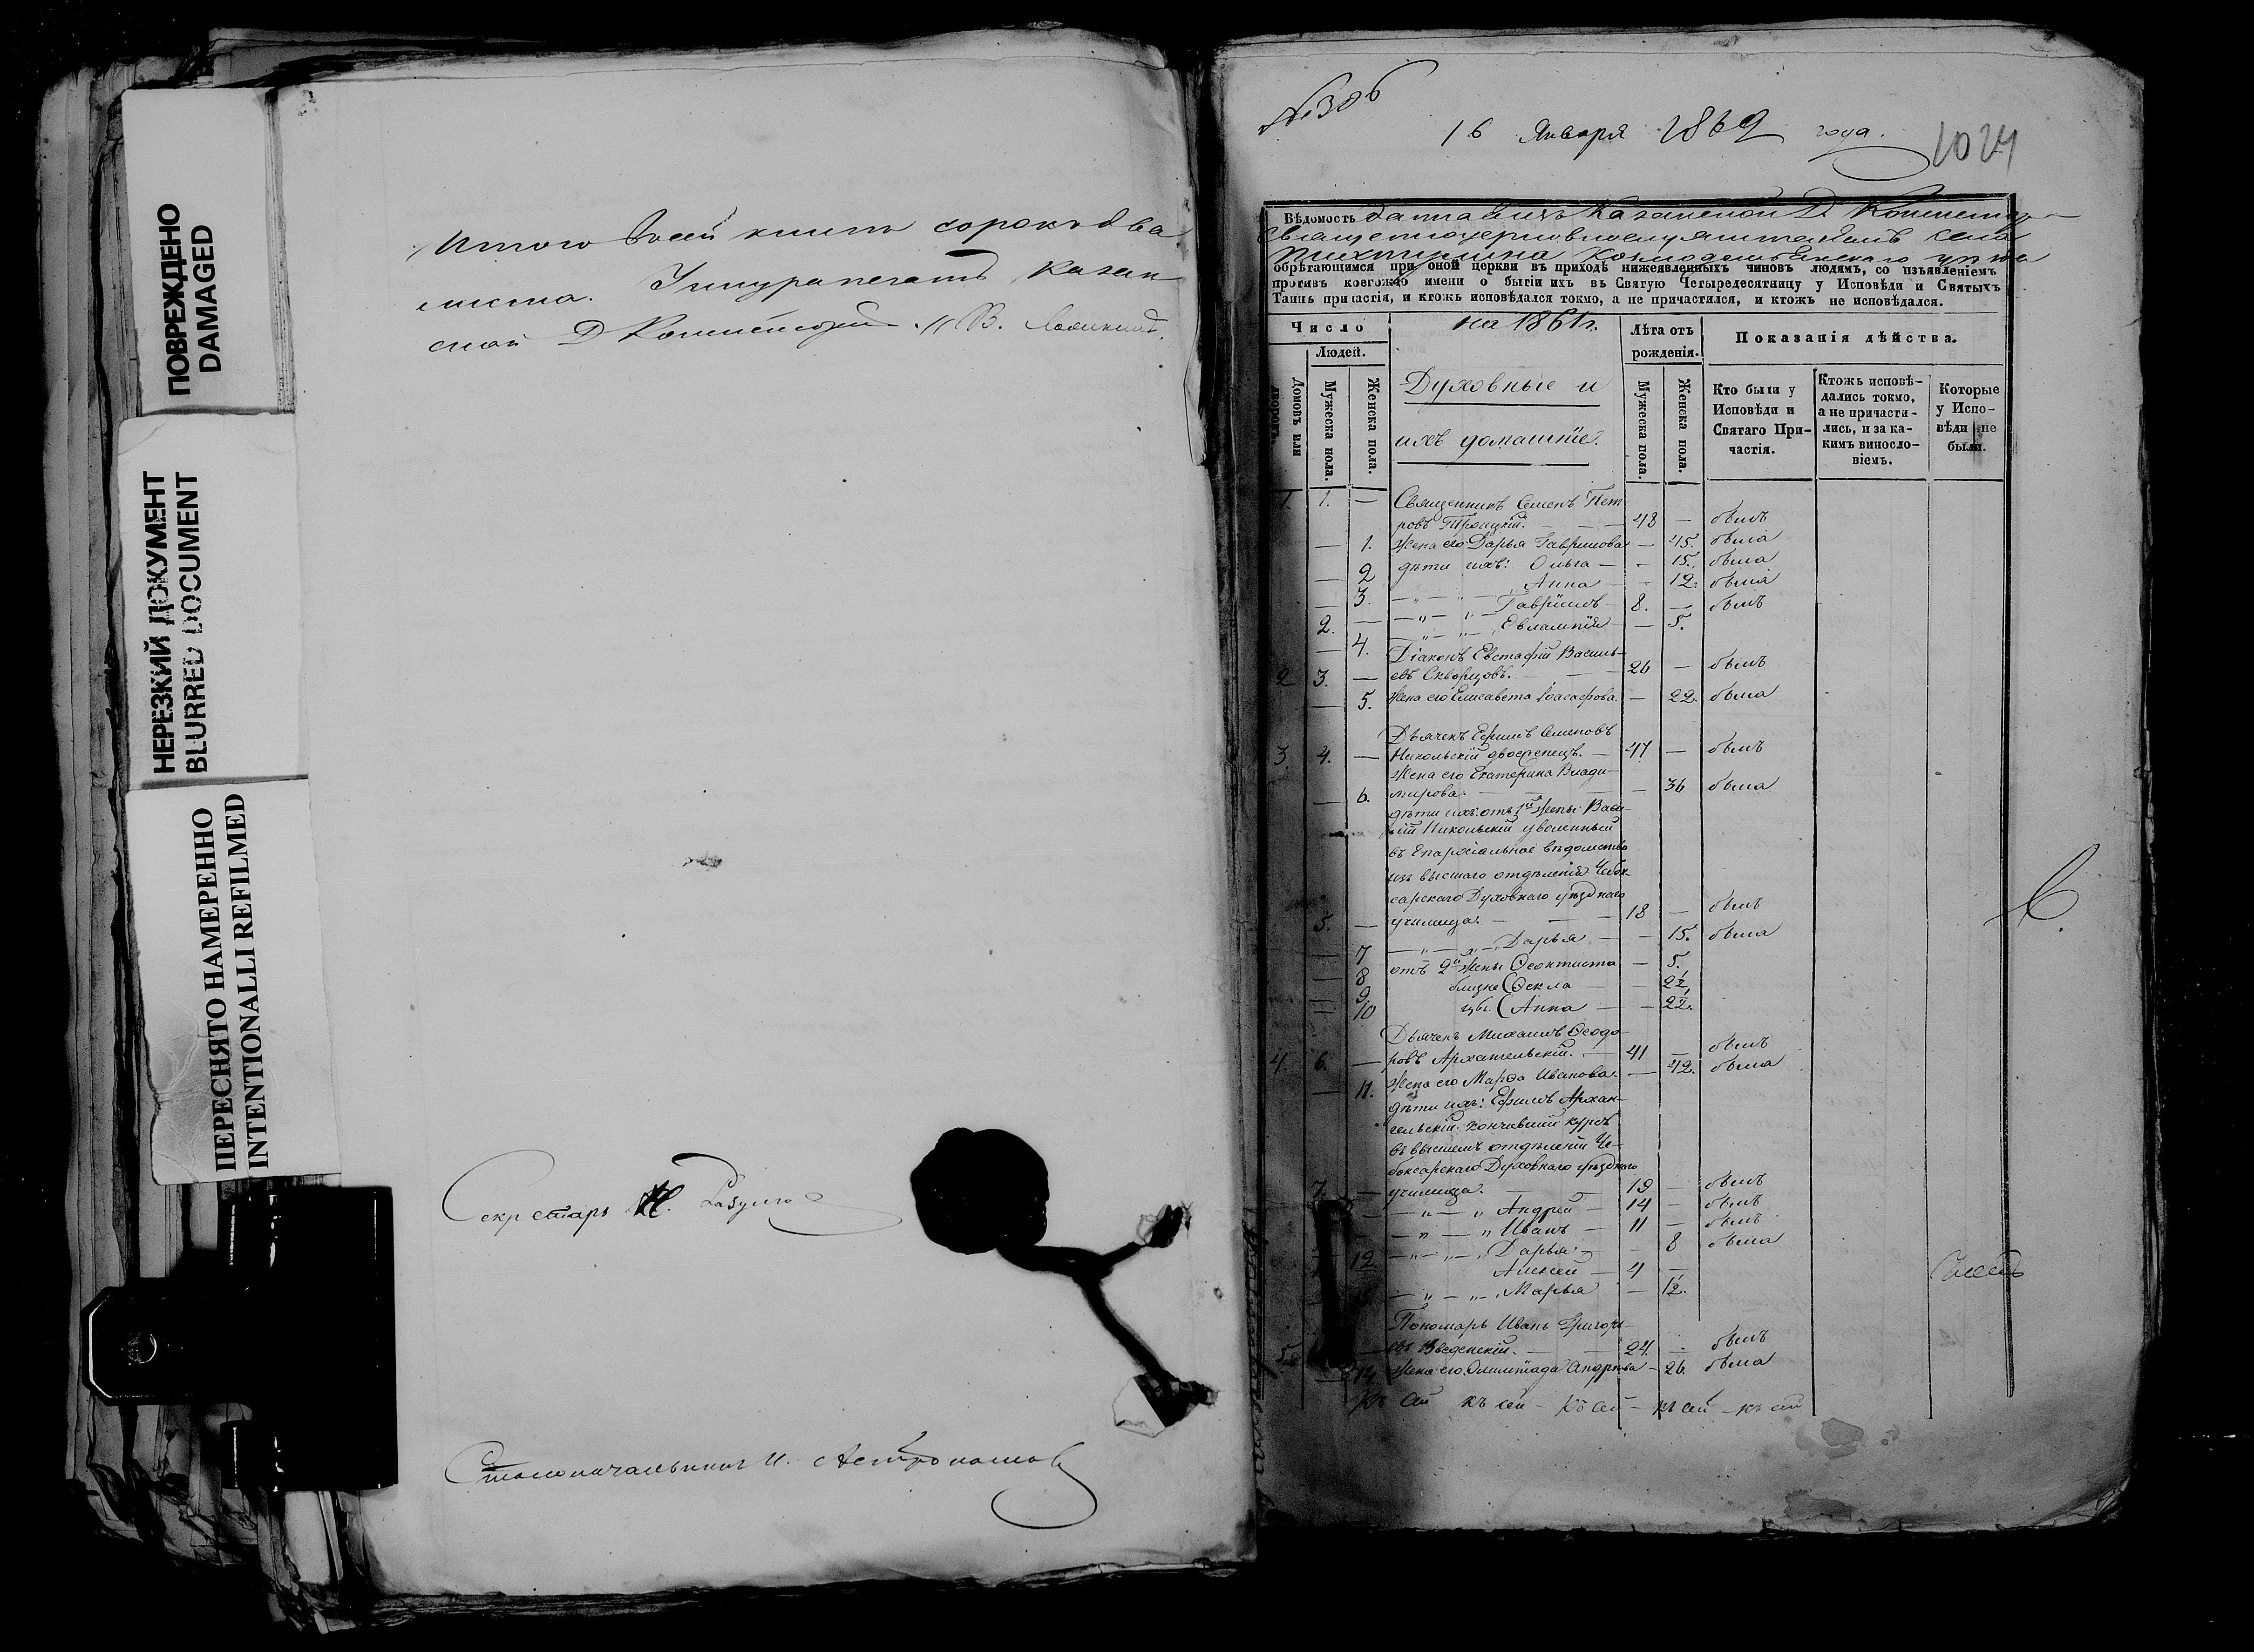 ПОВРЕЖДЕНО
DAMAGED
НЕРЕЗКИЙ ДОКУМЕНТ
BLURRED DOCUMENT
ПЕРЕСНЯТО НАМЕРЕННО
INTENTIONALLI REFILMED
Итого всей книги сорокъ два
листа. У шнура печать Казан
ской Д Консисторіи.
Секретарь Н. Разумо
Столоначальникъ И. Астрономов
№306
16 Января 1869 года.
1024
Вѣдомость данна изъ Казанской Д. Консистор
священноцерковнослужителемъ села
Козмодемьянскаго уѣзда
обрѣтающимся при оной церкви въ приходѣ нижеявленныхъ чиновъ людямъ, со изъявленіемъ
противъ коегождо имени о бытіи ихъ въ Святую Четыредесятницу у Исповѣди и Святыхъ
Таинъ причастія, и ктожъ исповѣдался токмо, а не причастился, и ктожъ не исповѣдался.
Число
на 1861 г.
Лѣта отъ рожденія.
Показанія дѣйства.
Людей.
Домовъ или дворовъ.
Мужеска пола.
Женска пола.
Духовные и
ихъ домашніе.
Мужеска пола.
Женска пола.
Кто были у Исповѣди и Святаго Причастія.
Ктожъ исповѣдались токмо, а не причастились, и за каким винословіемъ.
Которые у Исповѣди не были.
1. 1. — Священникъ Семенъ Пет
ровъ Троицкій. — 48 — былъ
— 1. Жена его Дарья Гаврилова — 45. была
— 2 дѣти ихъ: Ольга — - 15. была
— 3. — „ — „ — Анна — 12. была
2. — — „ — „ — Гавріилъ 8. — былъ
— 4. — „ — „ — Евлампія — 5.
Діаконъ Евстафій Василь-
2 3. — евъ Скворцовъ. — 26 — былъ
— 5. Жена его Елисавета Іоасафова — 22. была
Дьячекъ Ефимъ Семеновъ
3. 4. — Никольскій двоеженецъ. — 47 — былъ
Жена его Екатерина Влади-
— 6. мирова. — — 36 была
дѣти ихъ: отъ 1й жены Васи-
лій Никольскій уволенный
въ Епархіальное вѣдомство
изъ высшаго отдѣленія Чебок
сарскаго Духовнаго уѣзднаго
5. — училища. — 18 — былъ
— 7 — „ — „ — Дарья — - 15. была
— 8 отъ 2й жены Ѳеоктиста — 5.
— 9 близне (Ѳекла — - 2½
— 10 цы. (Анна — - 2½.
Дьячекъ Михаилъ Ѳеодо-
4. 6. — ровъ Архангельскій. — 41 — былъ
— 11. Жена его Марѳа Иванова. — 42. была
дѣти ихъ: Ефимъ Архан-
гельскій кончившій курсъ
въ высшемъ отдѣленіи Че-
боксарскаго Духовнаго уѣзднаго
7. — училища. — 19 — былъ
— „ — „ Андрей — 14 — былъ
— „ — „ Иванъ — 11 — былъ
12. — „ — „ Дарья — - 8 была
Алексей — 4 —
— „ — „ — Марья — ½.
Пономарь Иванъ Григорь-
5. — евъ Введенскій. — 24. - былъ
14 Жена его Олимпіада Андрѣева - 26. была
къ сей къ сей - къ сей - къ сей - къ сей